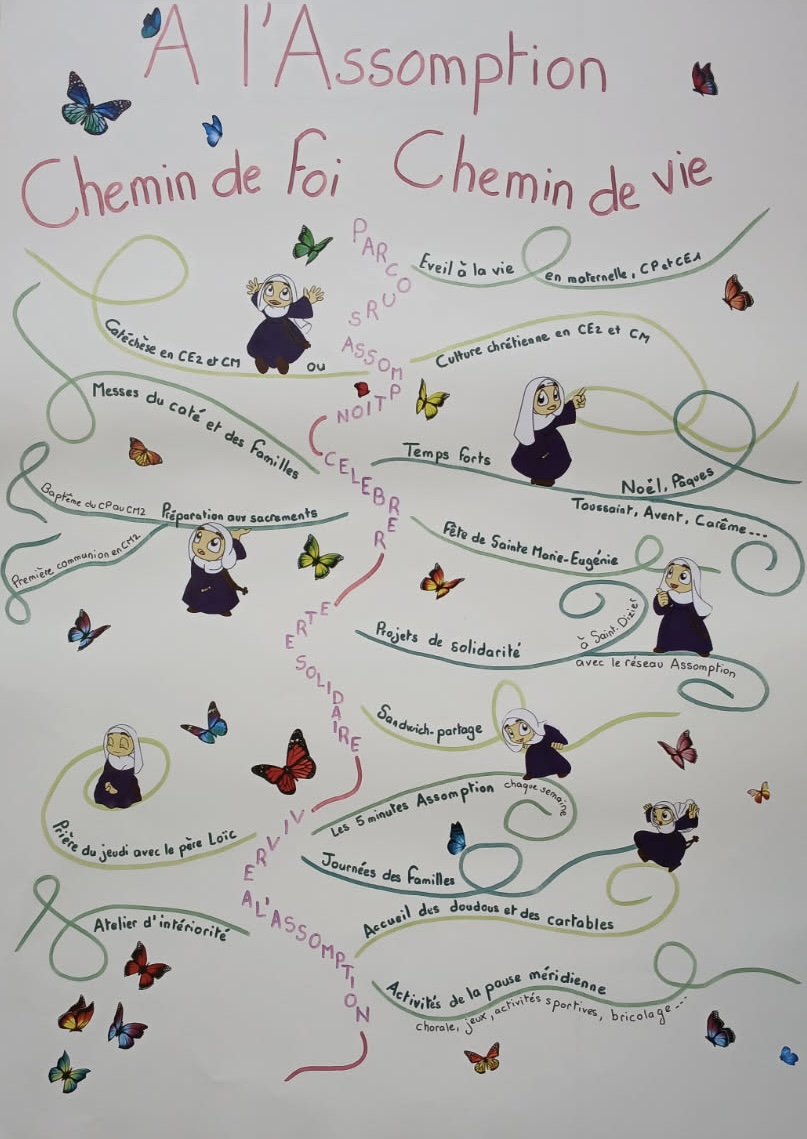 A l'Assomption
Chemin de Foi Chemin de vie
PARCOURS
ASSOMPTION
Eveil à la vie en maternelle, CP et CE1
Catéchèse en CE2 et CM
ou
Culture chrétienne en CE2 et CM
CELEBRER
Messes du caté et des Familles
Temps forts
Noël, Pâques
Toussaint, Avent, Carême...
Préparation aux sacrements
Baptême du CP au CM2
Première communion en CM2
Fête de Sainte Marie-Eugénie
ETRE
SOLIDAIRE
Projets de solidarité
à Saint-Dizier
avec le réseau Assomption
Sandwich-partage
VIVRE
A L'ASSOMPTION
Les 5 minutes Assomption chaque semaine
Prière du jeudi avec le père Loïc
Journées des Familles
Accueil des doudous et des cartables
Atelier d'intériorité
Activités de la pause méridienne
chorale, jeux, activités sportives, bricolage...